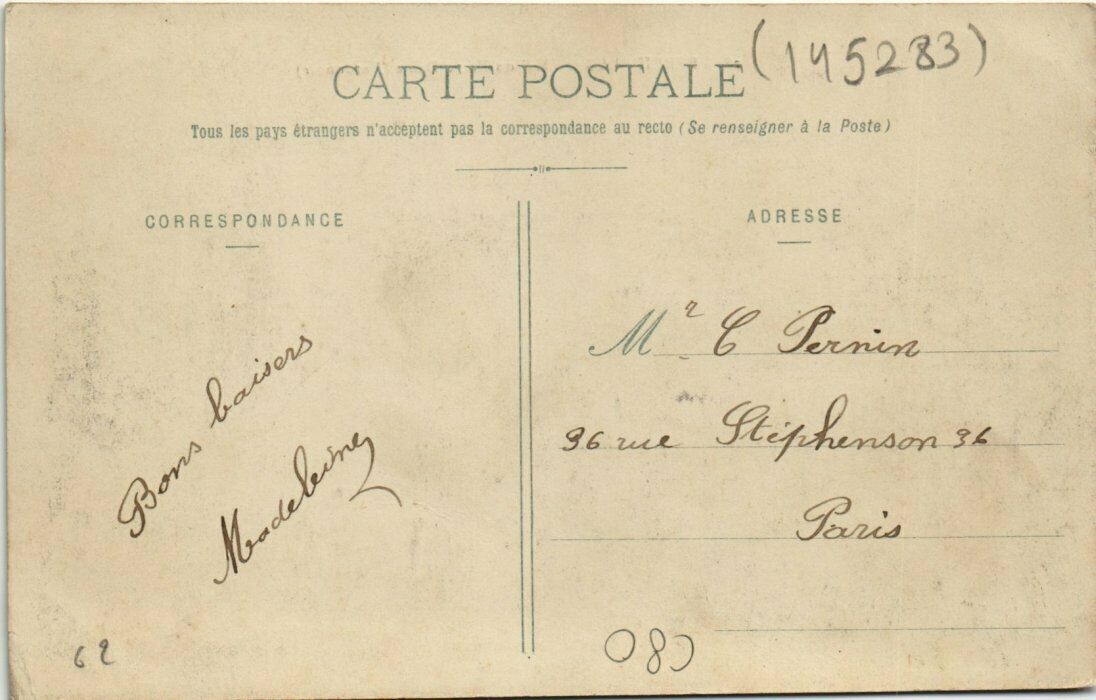 CARTE POSTALE
(145283)
Tous les pays étrangers n'acceptent pas la correspondance au recto (Se renseigner à la Poste)
CORRESPONDANCE
Bons baisers
Madeleine
62
ADRESSE
Mr C Pernin
36 rue Stéphenson 36
Paris
080